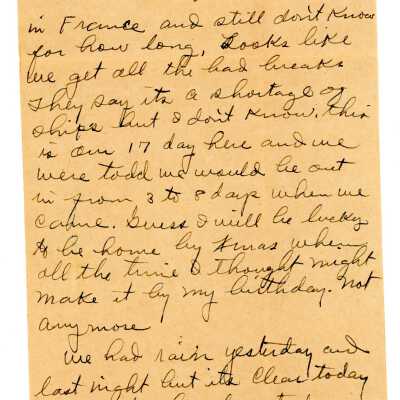 in France and still don't know
for how long, Looks like
we get all the bad breaks
They say its a shortage of
ships but I don't know. This
is our 17 day here and we
were todd we would be out
in from 3 to 8 days when we
came. Guess I will be lucky
to be home by Xmas when
all the time I thought might
make it by my birthday. Not
anymore
We had rain yesterday and
last night but its clear today